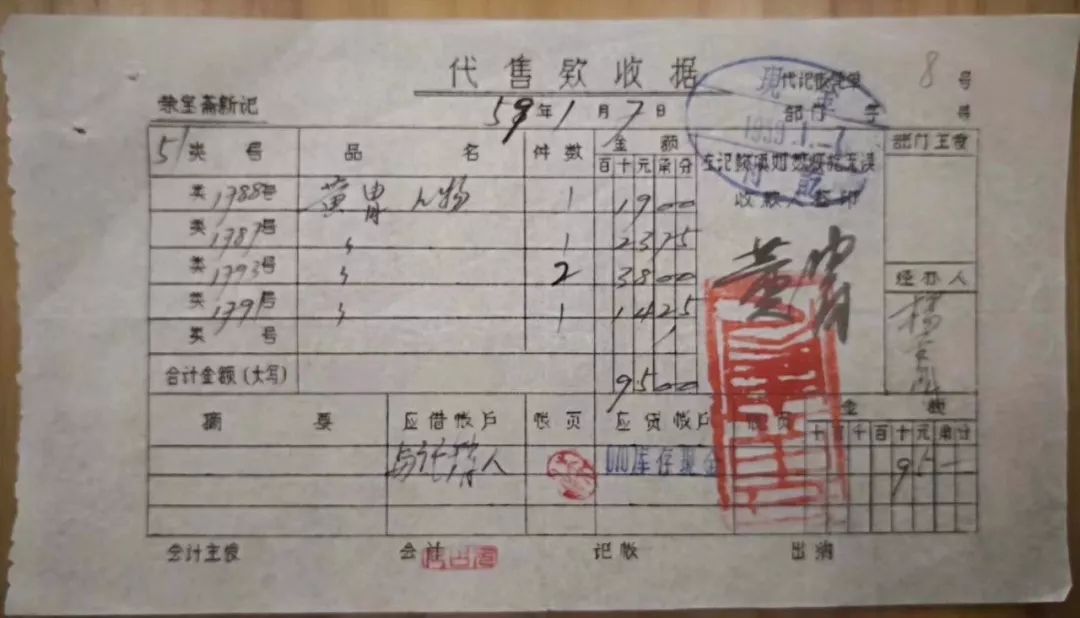 代售款收据
8号
荣宝斋新记 59年1月7日 部门 字 号
51类 号 品 名 件数 金额 部门主管
百十元角分
收款人签印
类1788号 黄胄 人物 1 19 00
类1787号 〃 1 23 75
类1793号 〃 2 38 00
类1791号 〃 1 14 25
类 号
黄胄
经办人
合计金额(大写) 95 00
摘 要 应借帐户 帐页 应贷帐户 帐页 金 额
十万千百十元角分
010库存现金 95
会计主管 会计 记帐 出纳
1959.1.7
付讫